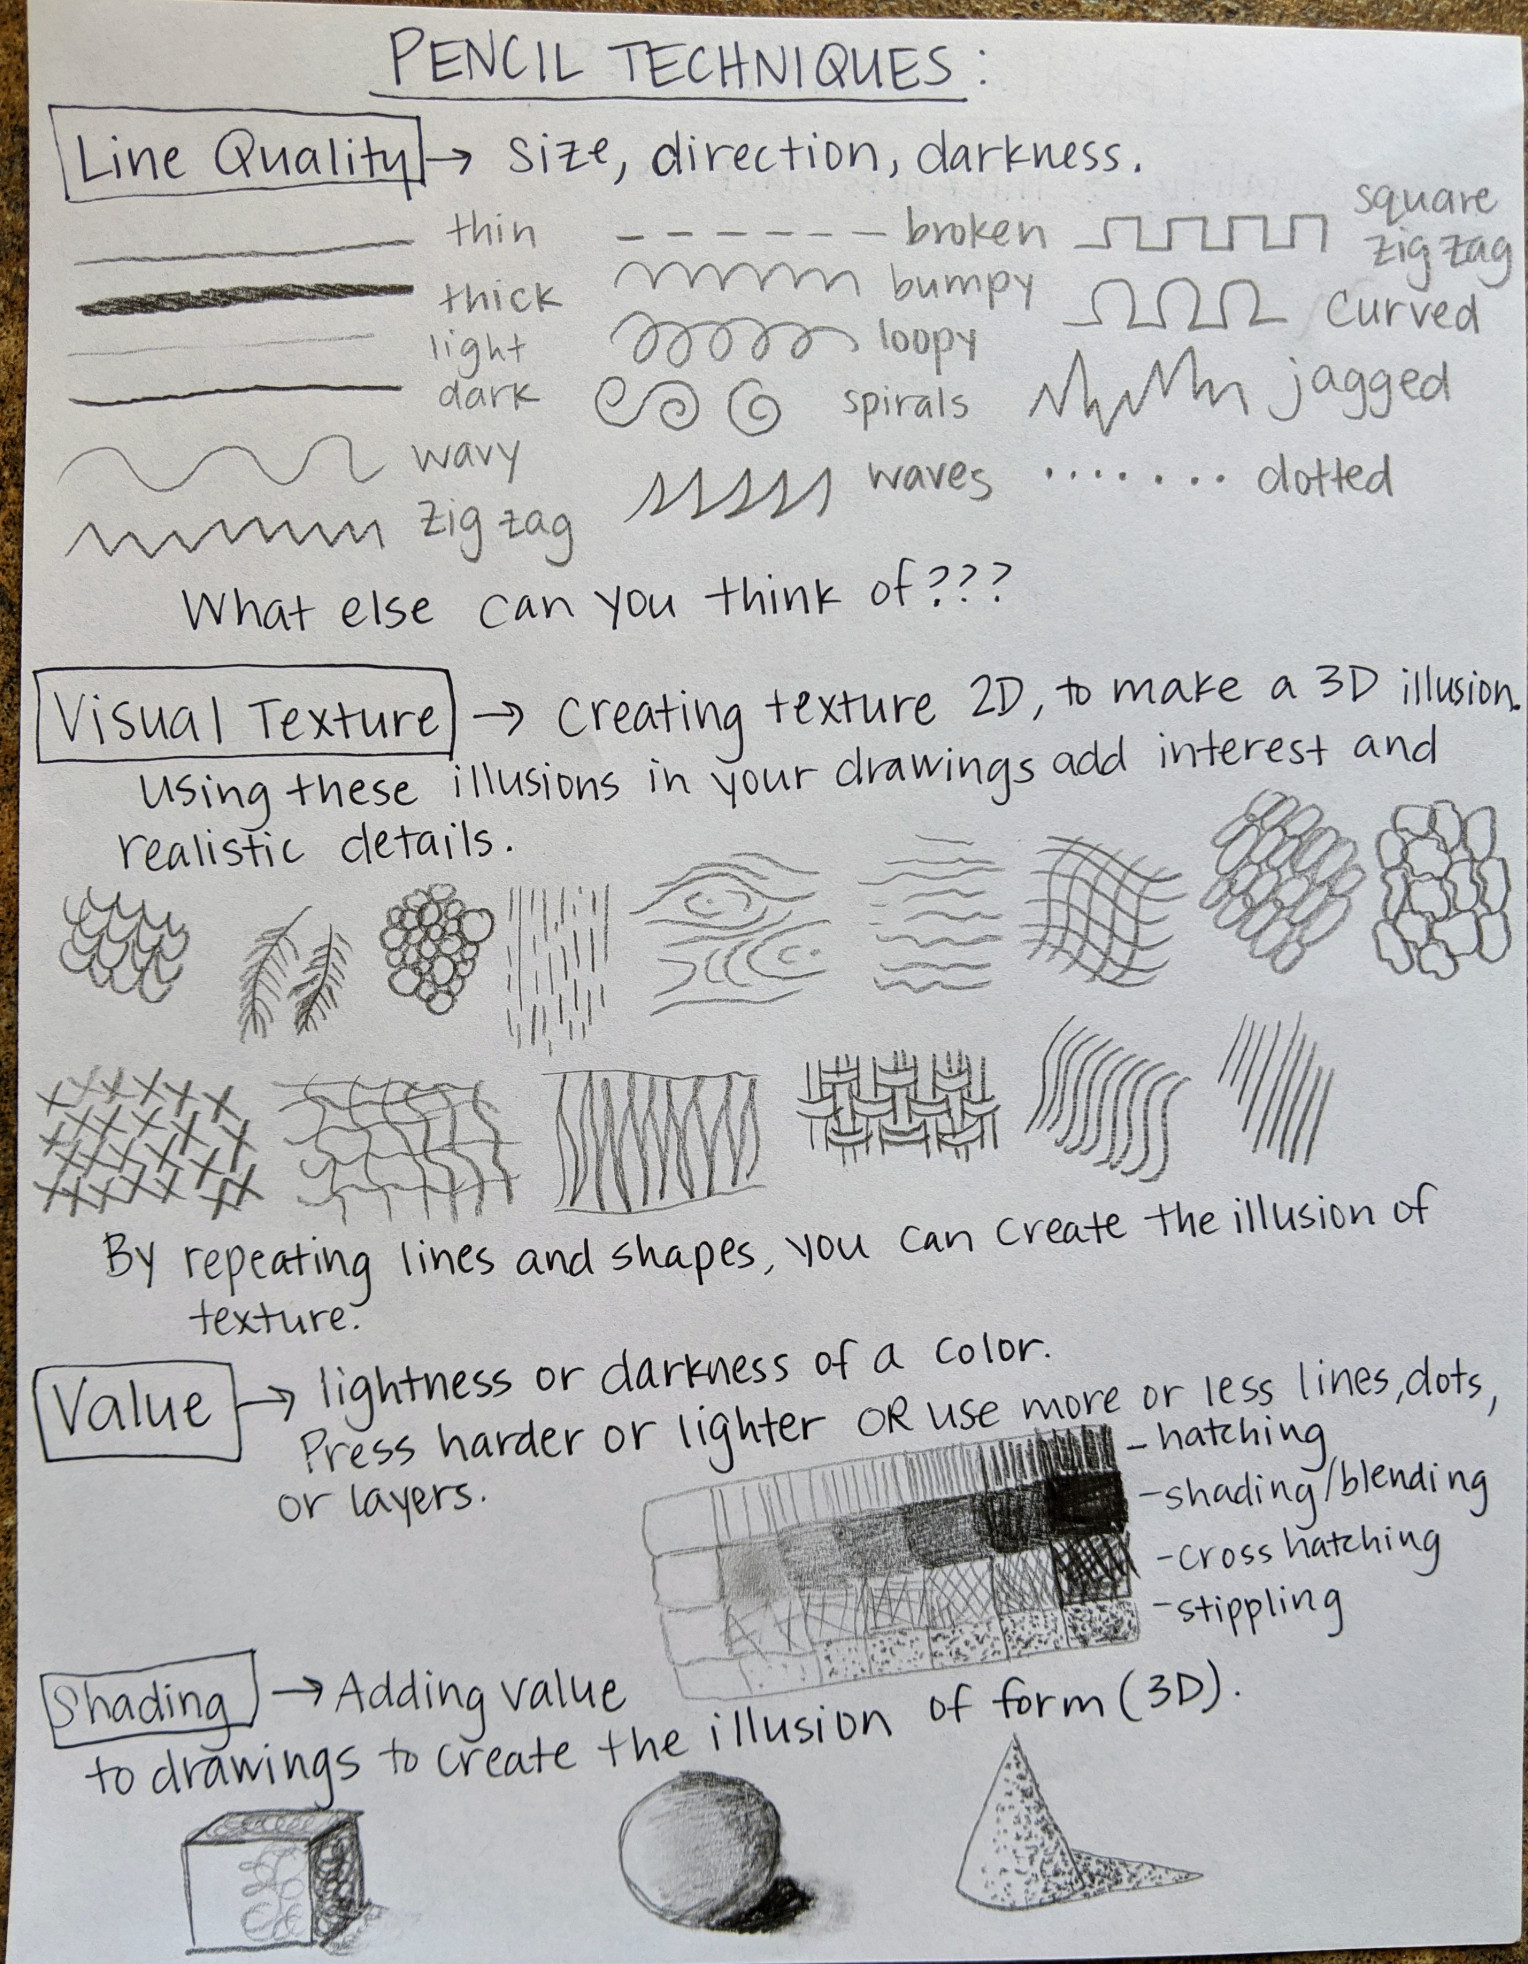 PENCIL TECHNIQUES:
Line Quality → size, direction, darkness.
thin
thick
light
dark
wavy
zig zag
broken
bumpy
loopy
spirals
waves
square
zig zag
curved
jagged
dotted
What else can you think of???
Visual Texture → creating texture 2D, to make a 3D illusion.
Using these illusions in your drawings add interest and
realistic details.
By repeating lines and shapes, you can create the illusion of
texture.
Value → lightness or darkness of a color.
Press harder or lighter OR use more or less lines, dots,
or layers.
- hatching
- shading/blending
- cross hatching
- stippling
Shading → Adding value
to drawings to create the illusion of form (3D).